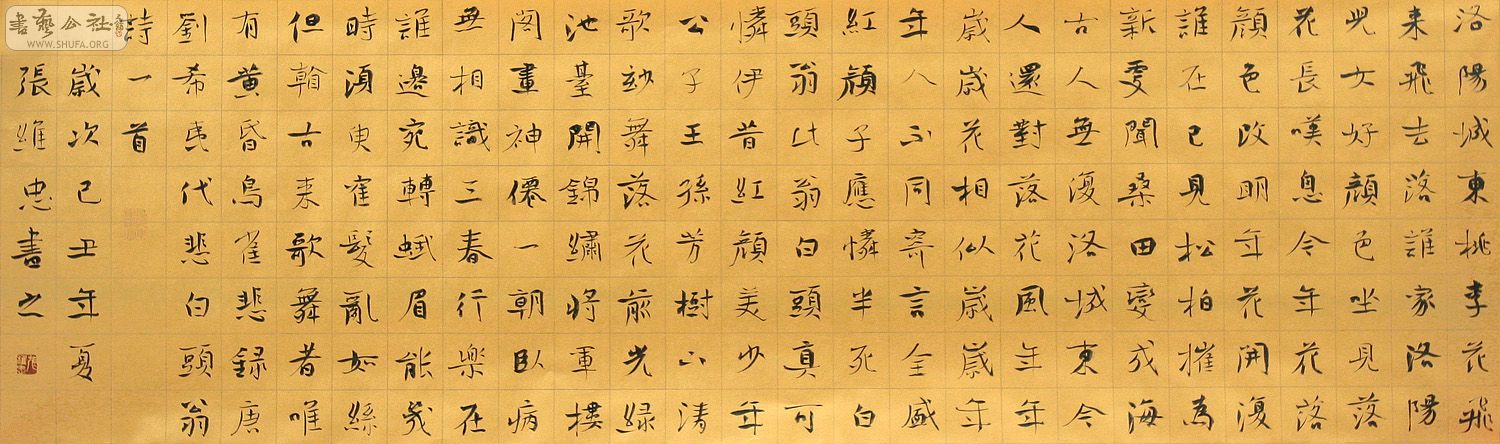 洛陽城東桃李花飛
来飛去落誰家洛陽
兒女好顏色坐見落
花長嘆息今年花落
顏色改明年花開復
誰在已見松柏摧為
新更聞桑田變成海
古人無復洛城東今
人還對落花風年年
歲歲花相似歲歲年
年人不同寄言全盛
紅顏子應憐半死白
頭翁此翁白頭真可
憐伊昔紅顏美少年
公子王孫芳樹下清
歌妙舞落花前光緑
池臺開錦繡將軍樓
閣畫神僊一朝臥病
無相識三春行樂在
誰邊宛轉蛾眉能幾
時須臾隺髮亂如絲
但翰古来歌舞者唯
有黄昏鳥雀悲録唐
劉希夷代悲白頭翁
詩一首
歲次己丑年夏
張維忠書之
書藝公社
WWW.SHUFA.ORG